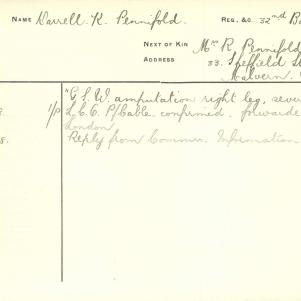 NAME Darrell. K. Pennifold. REG. &C. 32nd Ba
NEXT OF KIN Mrs R. Pennifold
ADDRESS 33. Sheffield St
Malvern.
"G.S.W. amputation right leg, seve
1/P L.C.C. P/Cable confirmed. forwarde
London
8. Reply from Commun. Information